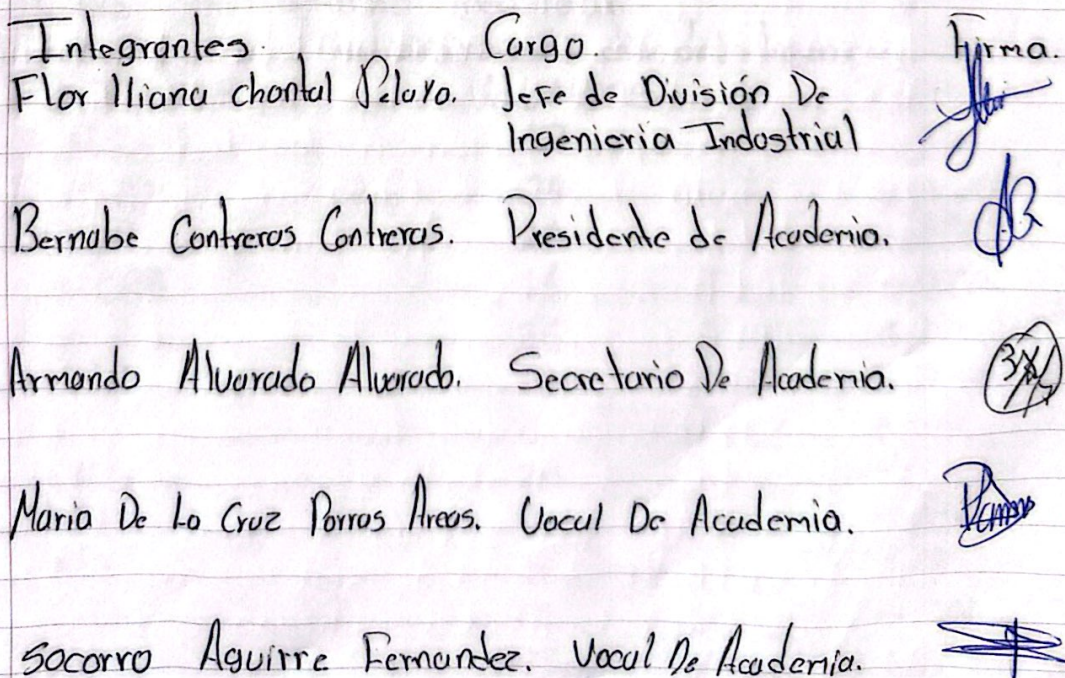 Integrantes. Cargo. Firma.
Flor Iliana chontal Pelayo. Jefe de División De
Ingenieria Industrial
Bernabe Contreras Contreras. Presidente de Academia.
Armando Alvarado Alvarado. Secretario De Academia.
Maria De La Cruz Porras Areas. Vocal De Academia.
Socorro Aguirre Fernandez. Vocal De Academia.